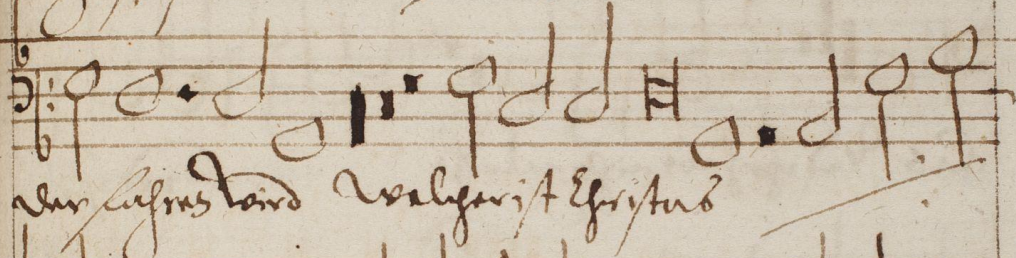 der fahren wird welcher ist Christus